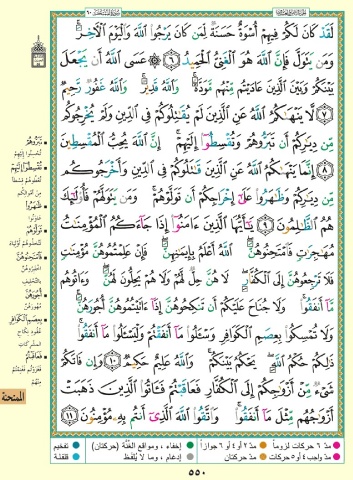 لَقَدْ كَانَ لَكُمْ فِيهِمْ أُسْوَةٌ حَسَنَةٌ لِّمَن كَانَ يَرْجُوا۟ ٱللَّهَ وَٱلْيَوْمَ ٱلْءَاخِرَ ۚ
وَمَن يَتَوَلَّ فَإِنَّ ٱللَّهَ هُوَ ٱلْغَنِىُّ ٱلْحَمِيدُ ٦ ۞ عَسَى ٱللَّهُ أَن يَجْعَلَ
بَيْنَكُمْ وَبَيْنَ ٱلَّذِينَ عَادَيْتُم مِّنْهُم مَّوَدَّةً ۚ وَٱللَّهُ قَدِيرٌ ۚ وَٱللَّهُ غَفُورٌ رَّحِيمٌ
٧ لَّا يَنْهَىٰكُمُ ٱللَّهُ عَنِ ٱلَّذِينَ لَمْ يُقَـٰتِلُوكُمْ فِى ٱلدِّينِ وَلَمْ يُخْرِجُوكُم
مِّن دِيَـٰرِكُمْ أَن تَبَرُّوهُمْ وَتُقْسِطُوٓا۟ إِلَيْهِمْ ۚ إِنَّ ٱللَّهَ يُحِبُّ ٱلْمُقْسِطِينَ
٨ إِنَّمَا يَنْهَىٰكُمُ ٱللَّهُ عَنِ ٱلَّذِينَ قَـٰتَلُوكُمْ فِى ٱلدِّينِ وَأَخْرَجُوكُم
مِّن دِيَـٰرِكُمْ وَظَـٰهَرُوا۟ عَلَىٰٓ إِخْرَاجِكُمْ أَن تَوَلَّوْهُمْ ۚ وَمَن يَتَوَلَّهُمْ فَأُو۟لَـٰٓئِكَ
هُمُ ٱلظَّـٰلِمُونَ ٩ يَـٰٓأَيُّهَا ٱلَّذِينَ ءَامَنُوٓا۟ إِذَا جَآءَكُمُ ٱلْمُؤْمِنَـٰتُ
مُهَـٰجِرَٰتٍ فَٱمْتَحِنُوهُنَّ ۖ ٱللَّهُ أَعْلَمُ بِإِيمَـٰنِهِنَّ ۖ فَإِنْ عَلِمْتُمُوهُنَّ مُؤْمِنَـٰتٍ
فَلَا تَرْجِعُوهُنَّ إِلَى ٱلْكُفَّارِ ۖ لَا هُنَّ حِلٌّ لَّهُمْ وَلَا هُمْ يَحِلُّونَ لَهُنَّ ۖ وَءَاتُوهُم
مَّآ أَنفَقُوا۟ ۚ وَلَا جُنَاحَ عَلَيْكُمْ أَن تَنكِحُوهُنَّ إِذَآ ءَاتَيْتُمُوهُنَّ أُجُورَهُنَّ ۚ
وَلَا تُمْسِكُوا۟ بِعِصَمِ ٱلْكَوَافِرِ وَسْـَٔلُوا۟ مَآ أَنفَقْتُمْ وَلْيَسْـَٔلُوا۟ مَآ أَنفَقُوا۟ ۚ
ذَٰلِكُمْ حُكْمُ ٱللَّهِ ۖ يَحْكُمُ بَيْنَكُمْ ۚ وَٱللَّهُ عَلِيمٌ حَكِيمٌ ١٠ وَإِن فَاتَكُمْ
شَىْءٌ مِّنْ أَزْوَٰجِكُمْ إِلَى ٱلْكُفَّارِ فَعَاقَبْتُمْ فَـَٔاتُوا۟ ٱلَّذِينَ ذَهَبَتْ
أَزْوَٰجُهُم مِّثْلَ مَآ أَنفَقُوا۟ ۚ وَٱتَّقُوا۟ ٱللَّهَ ٱلَّذِىٓ أَنتُم بِهِۦ مُؤْمِنُونَ ١١
تَبَرُّوهُمْ
تُحسنوا إليهم
تُقْسِطُوا إِلَيْهِمْ
من أموالكم
ظَاهَرُوا
عاونوا
تَوَلَّوْهُمْ
تتّخذوهم أولياء
فَامْتَحِنُوهُنَّ
اختبروهنّ
بالتحليف
أُجُورَهُنَّ
مهورهنّ
بِعِصَمِ الْكَوَافِرِ
عقود نكاح
المشركات
فَعَاقَبْتُمْ
فغزوتم فغنمتم
منهم
الممتحنة
مدّ ٦ حركات لزوماً
مدّ ٢ أو ٤ أو ٦ جوازاً
إخفاء، ومواقع الغُنَّة (حركتان)
تفخيم
مدّ واجب ٤ أو ٥ حركات
مدّ حركتان
إدغام، وما لا يُلفَظ
قلقلة
٥٥٠